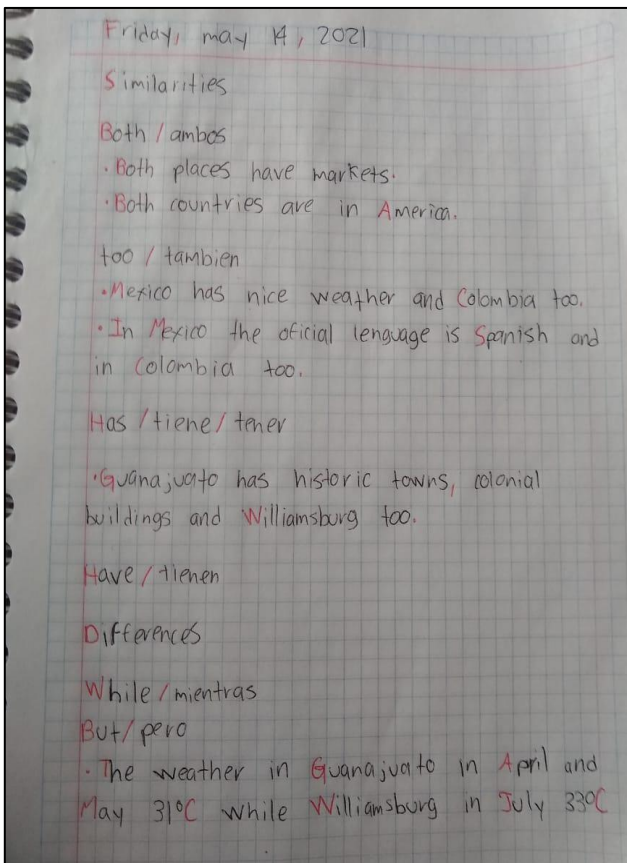 Friday, may 14, 2021
Similarities
Both / ambos
· Both places have markets.
· Both countries are in America.
too / tambien
· Mexico has nice weather and Colombia too.
· In Mexico the oficial lenguage is Spanish and
in Colombia too.
Has / tiene / tener
· Guanajuato has historic towns, colonial
buildings and Williamsburg too.
Have / tienen
Differences
While / mientras
But / pero
· The weather in Guanajuato in April and
May 31°C while Williamsburg in July 33°C